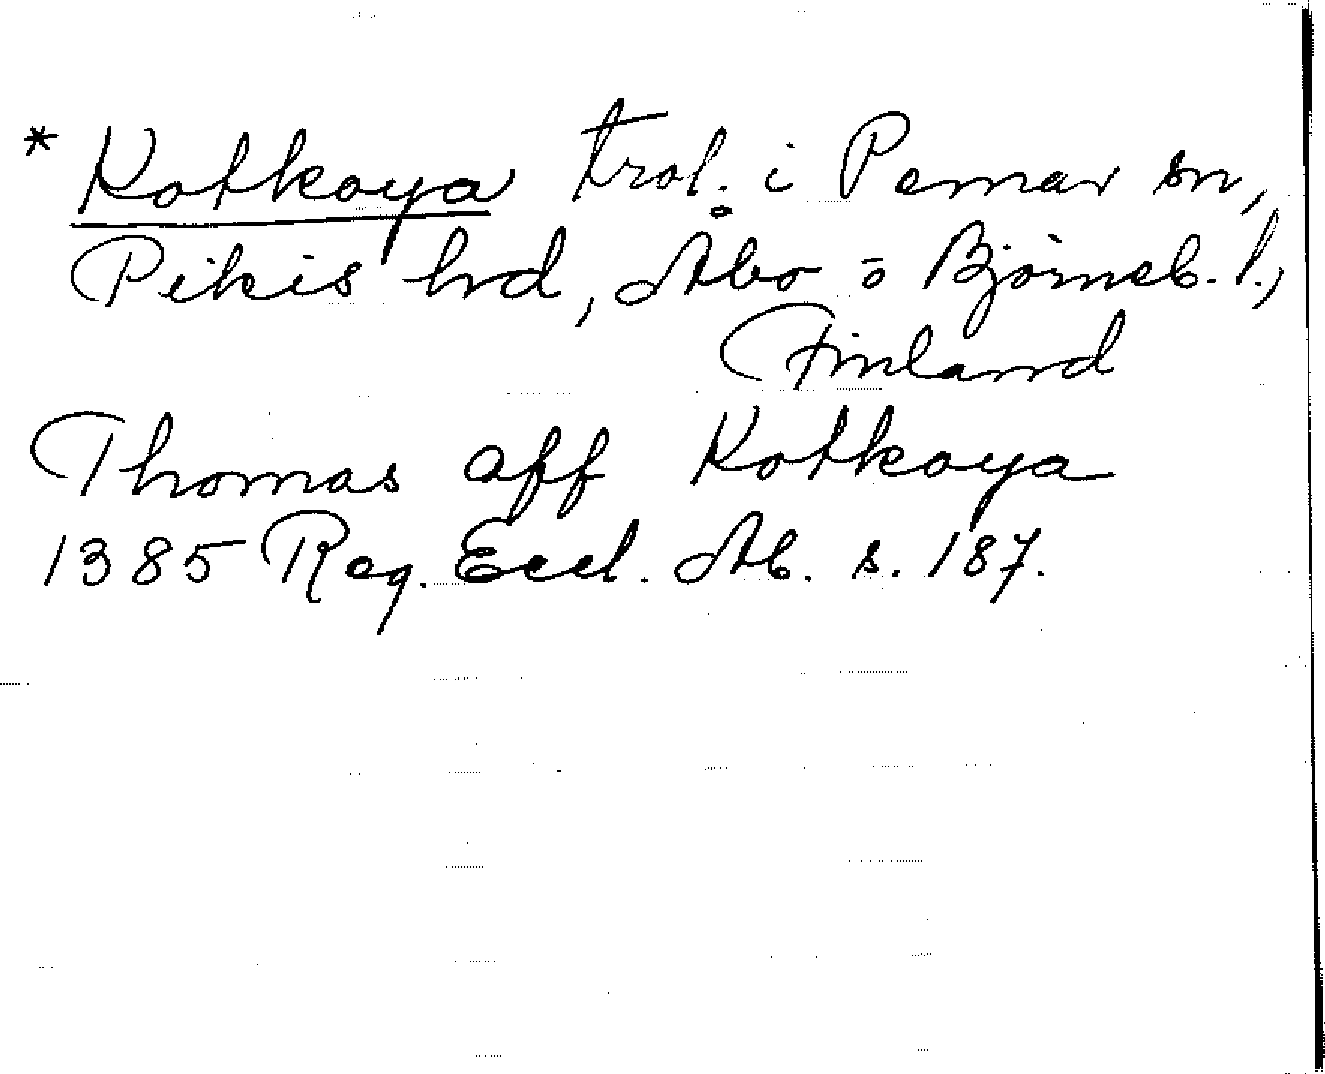 * Kotkoya trol. i Pemar sn,
Pikis hd, Åbo o Björneb. l.,
Finland
Thomas aff Kotkoya
1385 Reg. Eccl. Ab. s. 187.